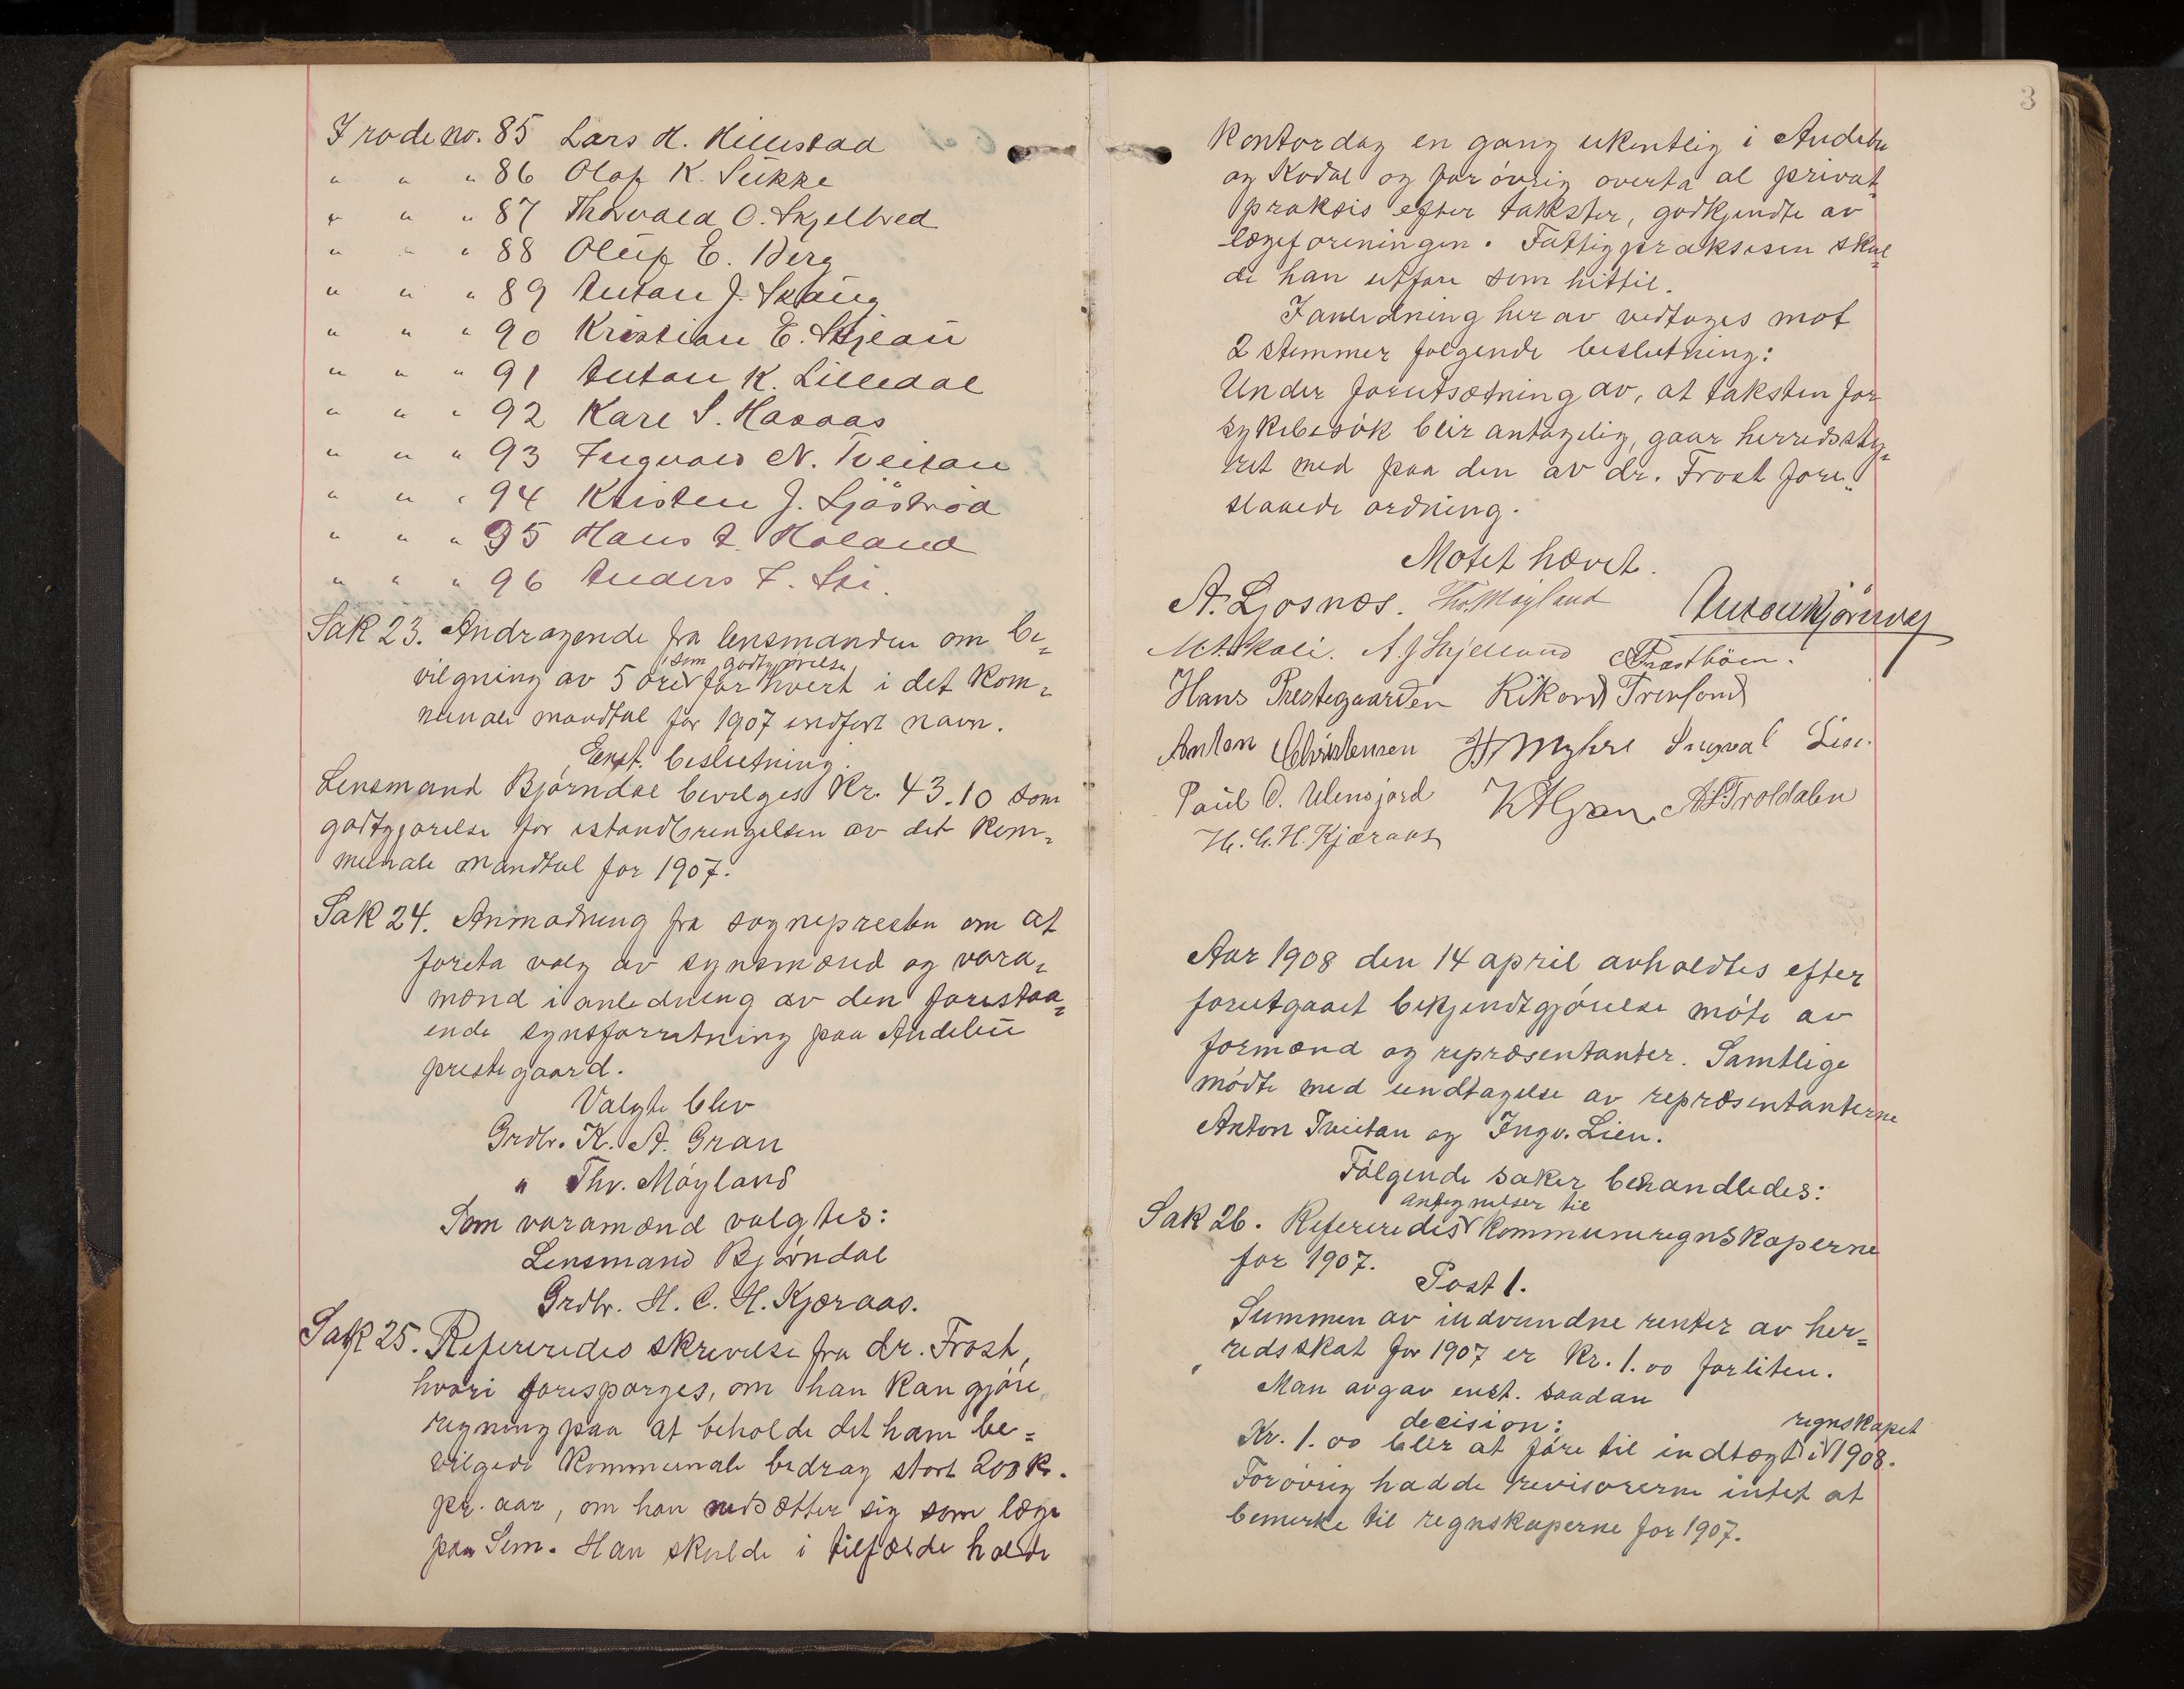 I rode no. 85 Lars H. Hillestad
" " " 86 Olaf K. Sukke
" " " 87 Thorvald O. Skjelbred
" " " 88 Oluf E. Berg
" " " 89 Anton J. Skaug
" " " 90 Kristian E. Skjeau
" " " 91 Anton K. Lilledal
" " " 92 Karl S. Hasaas
" " " 93 Ingvald N. Tveitan
" " " 94 Kristen J. Sjöströd
" " " 95 Hans A. Holand
" " " 96 Anders F. Ski.
Sak 23. Andragende fra lensmanden om be=
som godtgjörelse
vilgning av 5 öre for hvert i det kom=
munale mandtal for 1907 indfört navn.
Enst. beslutning.
Lensmand Bjørndal bevilges Kr. 43.10 som
godtgjørelse for istandbringelsen av det kom=
munale mandtal for 1907.
Sak 24. Anmodning fra sognepresten om at
foreta valg av synsmænd og vara=
mænd i anledning av den forestaa=
ende synsforretning paa Andebu
prestegaard.
Valgte blev
Grdbr. K. A. Gran
" Thv. Möyland
Som varamænd valgtes:
Lensmand Bjørndal
Grdbr. H. C. H. Kjæraas.
Sak 25. Refereredes skrivelse fra dr. Frost,
hvori forespørges, om han kan gjøre
regning paa at beholde det ham be=
vilgede kommunale bedrag stort 200 kr.
pr. aar, om han nedsætter sig som læge
paa Sem. Han skulde i tilfælde holde
3
kontordag en gang ukentlig i Andebu
og Kodal og for övrig overta al privat
praksis efter takster, godkjendte av
lægeforeningen. Fattigpraksisen skul=
de han utføre som hittil.
I anledning herav vedtoges mot
2 stemmer følgende beslutning:
Under forutsætning av, at taksten for
sykebesök blir antagelig, gaar herredssty=
ret med paa den av dr. Frost fore=
slaaede ordning.
Møtet hævet.
A. Ljosnæs. Thv. Möyland Anton Kjörnvag
M. A. Skali. A. J. Skjelland
Hans Prestegaarden Rikard Trevland
Anton Christensen H Myhre Ingval Lien.
Paul O. Ulensjord K A Gran. A. L. Troldalen
H. C. H. Kjæraas
Aar 1908 den 14 april avholdtes efter
forutgaaet bekjendtgjörelse möte av
formænd og repræsentanter. Samtlige
mödte med undtagelse av repræsentanterne
Anton Tveitan og Ingv. Lien.
Fölgende saker behandledes:
antegnelser til
Sak 26. Refereredes kommuneregnskaperne
for 1907.
Post 1.
Summen av indvundne renter av her=
redsskat for 1907 er kr. 1.00 forliten.
Man avgav enst. saadan
decision: regnskapet
Kr. 1.00 blir at före til indtægt i 1908.
Forövrig hadde revisorerne intet at
bemerke til regnskaperne for 1907.